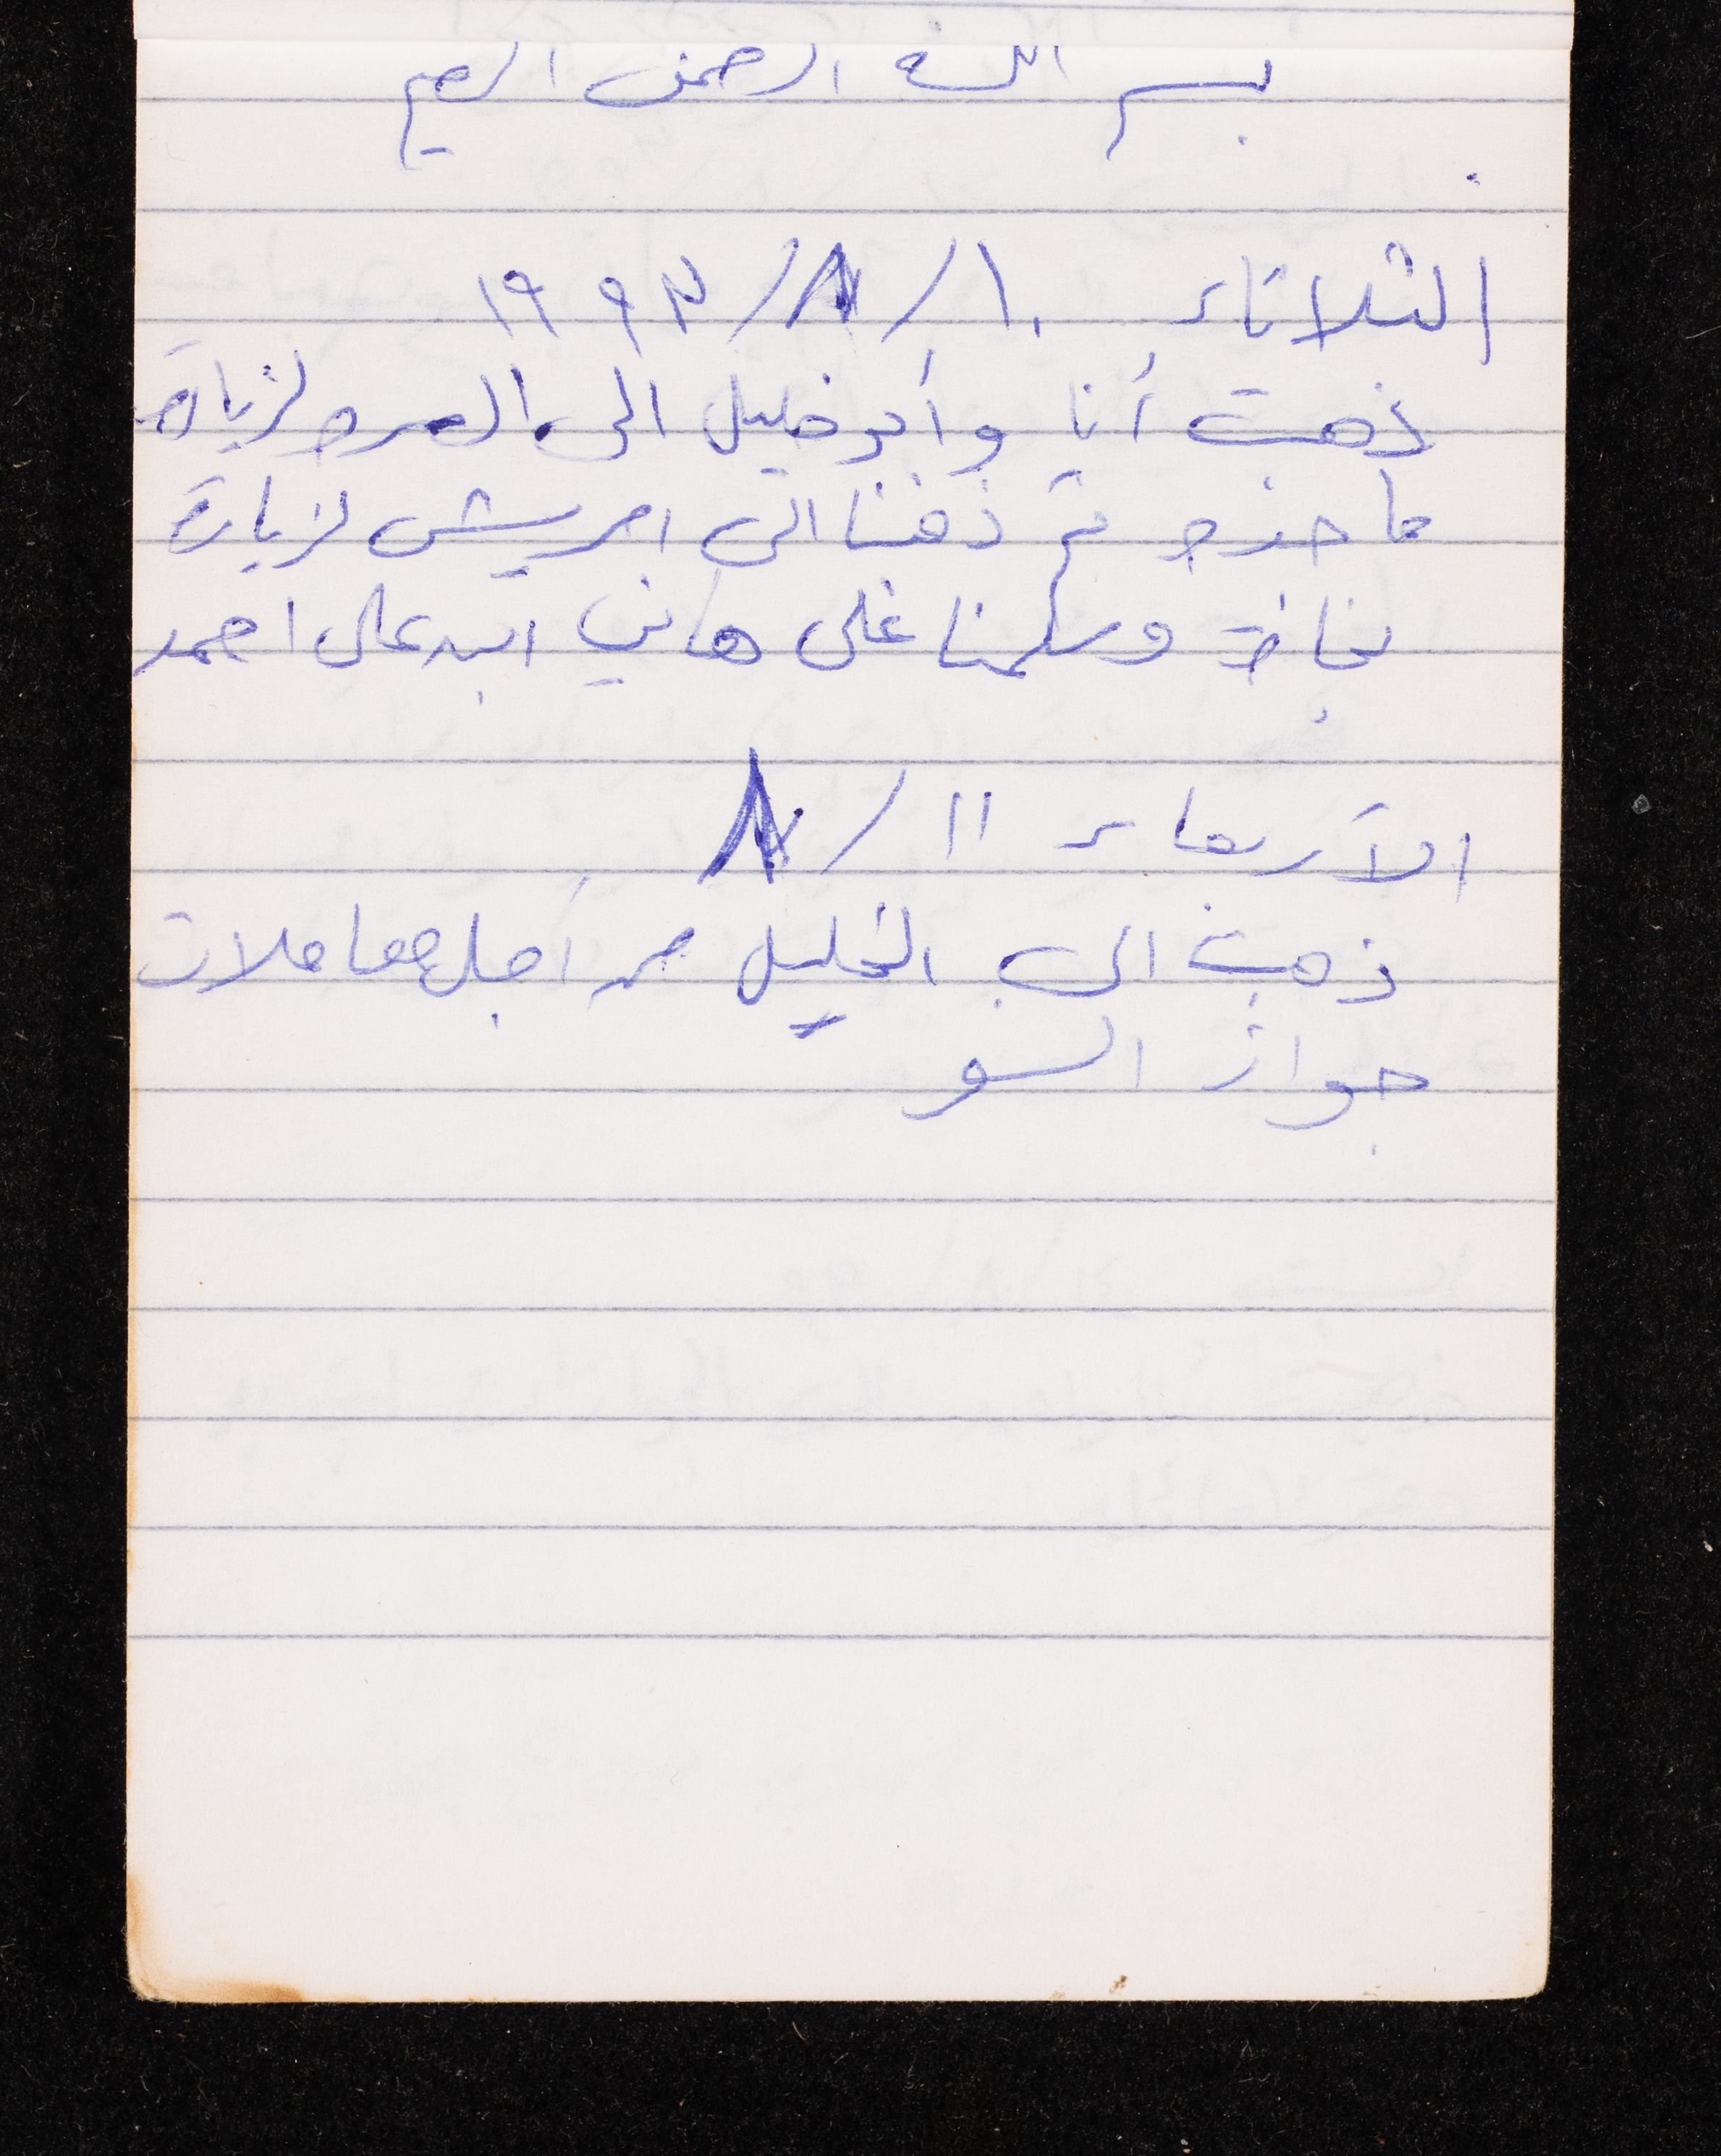 بسم الله الرحمن الرحيم
الثلاثاء ١٠/٨/١٩٩٣
ذهبت أنا وأبو خليل الى لزيارة
ثم ذهبنا الى امريش لزيارة
وسلمنا على هاني ابن علي احمد
الأربعاء ١١/٨
ذهبت الى الخليل من اجل معاملات
جواز السفر